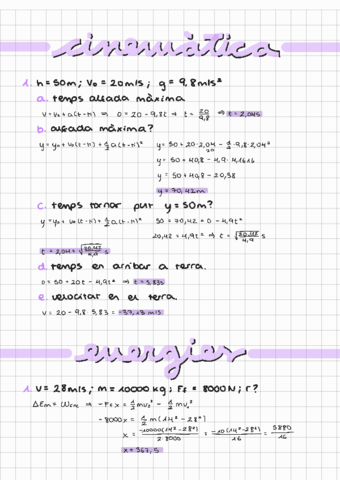 cinemàtica
1. h = 50m ; V₀ = 20m/s ; g = 9,8m/s²
a. temps alçada màxima
v = v₀ + a(t-t₀) ⇒ 0 = 20 - 9,8t ⇒ t = 20/9,8 ⇒ t = 2,04s
b. alçada màxima?
y = y₀ + v₀(t-t₀) + 1/2 a(t-t₀)² y = 50 + 20·2,04 - 1/2·9,8·2,04²
y = 50 + 40,8 - 4,9·4,1616
y = 50 + 40,8 - 20,38
y = 70,42m
c. temps tornar pur y = 50m?
y = y₀ + v₀(t-t₀) + 1/2 a(t-t₀)² 50 = 70,42 + 0 - 4,9t²
20,42 = 4,9t² ⇒ t = √ s
t = 2,04 + √ s
d. temps en arribar a terra.
0 = 50 + 20t - 4,9t² ⇒ t = 5,83s
e. velocitat en el terra.
v = 20 - 9,8·5,83 = -37,13 m/s
energies
1. v = 28m/s ; m = 10000kg ; Ff = 8000N ; r?
ΔEm = Wnc ⇒ -Ff·x = 1/2 mv² - 1/2 mv₀²
-8000x = 1/2 m(14² - 28²)
x = -10000(14² - 28²)/2·8000 = -10(14² - 28²)/16 = 5880/16
x = 367,5